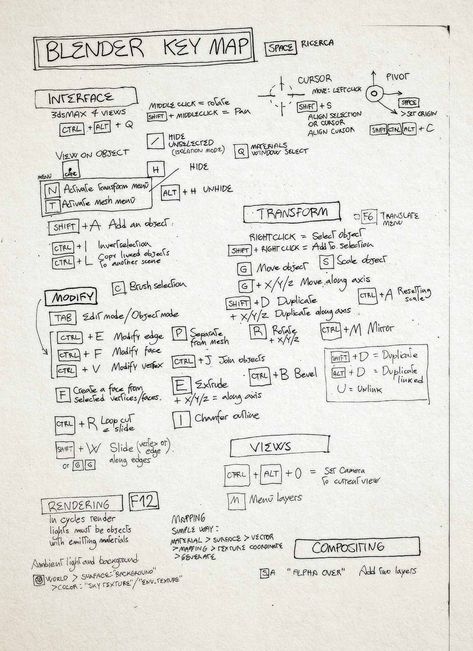 BLENDER KEY MAP
SPACE RICERCA
INTERFACE
3dsMAX 4 VIEWS
CTRL + ALT + Q
MIDDLE CLICK = rotate
SHIFT + MIDDLECLICK = Pan
/ HIDE
UNSELECTED
(ISOLATION MODE)
CURSOR
MOVE: LEFTCLICK
SHIFT + S
ALIGN SELECTION
OR CURSOR
ALIGN CURSOR
PIVOT
SPACE
> SET ORIGIN
SHIFT CTRL ALT + C
Q MATERIALS
WINDOW SELECT
VIEW ON OBJECT
H HIDE
MENU
N Activate Transform menu
T Activate mesh menu
ALT + H UNHIDE
SHIFT + A Add an object
CTRL + I Invert selection
CTRL + L Copy linked objects
to another scene
C Brush selection
TRANSFORM
F6 TRANSLATE
MENU
RIGHTCLICK = Select object
SHIFT + RIGHTCLICK = Add to selection
G Move object
S Scale object
G + X/Y/Z Move along axis
SHIFT + D Duplicate
+ X/Y/Z Duplicate along axis
CTRL + A Resetting
scale
R Rotate
+ X/Y/Z
CTRL + M Mirror
SHIFT + D = Duplicate
ALT + D = Duplicate
linked
U = Unlink
MODIFY
TAB Edit mode / Object mode
CTRL + E Modify edge
CTRL + F Modify face
CTRL + V Modify vertex
P Separate
from mesh
CTRL + J Join objects
F Create a face from
selected vertices/faces.
E Extrude
+ X/Y/Z = along axis
CTRL + B Bevel
CTRL + R Loop cut
e slide
I Chamfer outline
SHIFT + W Slide (vertex or)
edge
or G G along edges
VIEWS
CTRL + ALT + 0 = Set Camera
to current view
M Menu layers
RENDERING F12
In cycles render
lights must be objects
with emitting materials
Ambient light and background
WORLD > SURFACE: "BACKGROUND"
> COLOR: "SKY TEXTURE"/"ENV. TEXTURE"
MAPPING
SIMPLE WAY:
MATERIAL > SURFACE > VECTOR
> MAPPING > TEXTURE COORDINATE
> GENERATE
COMPOSITING
SA "ALPHA OVER" Add two layers